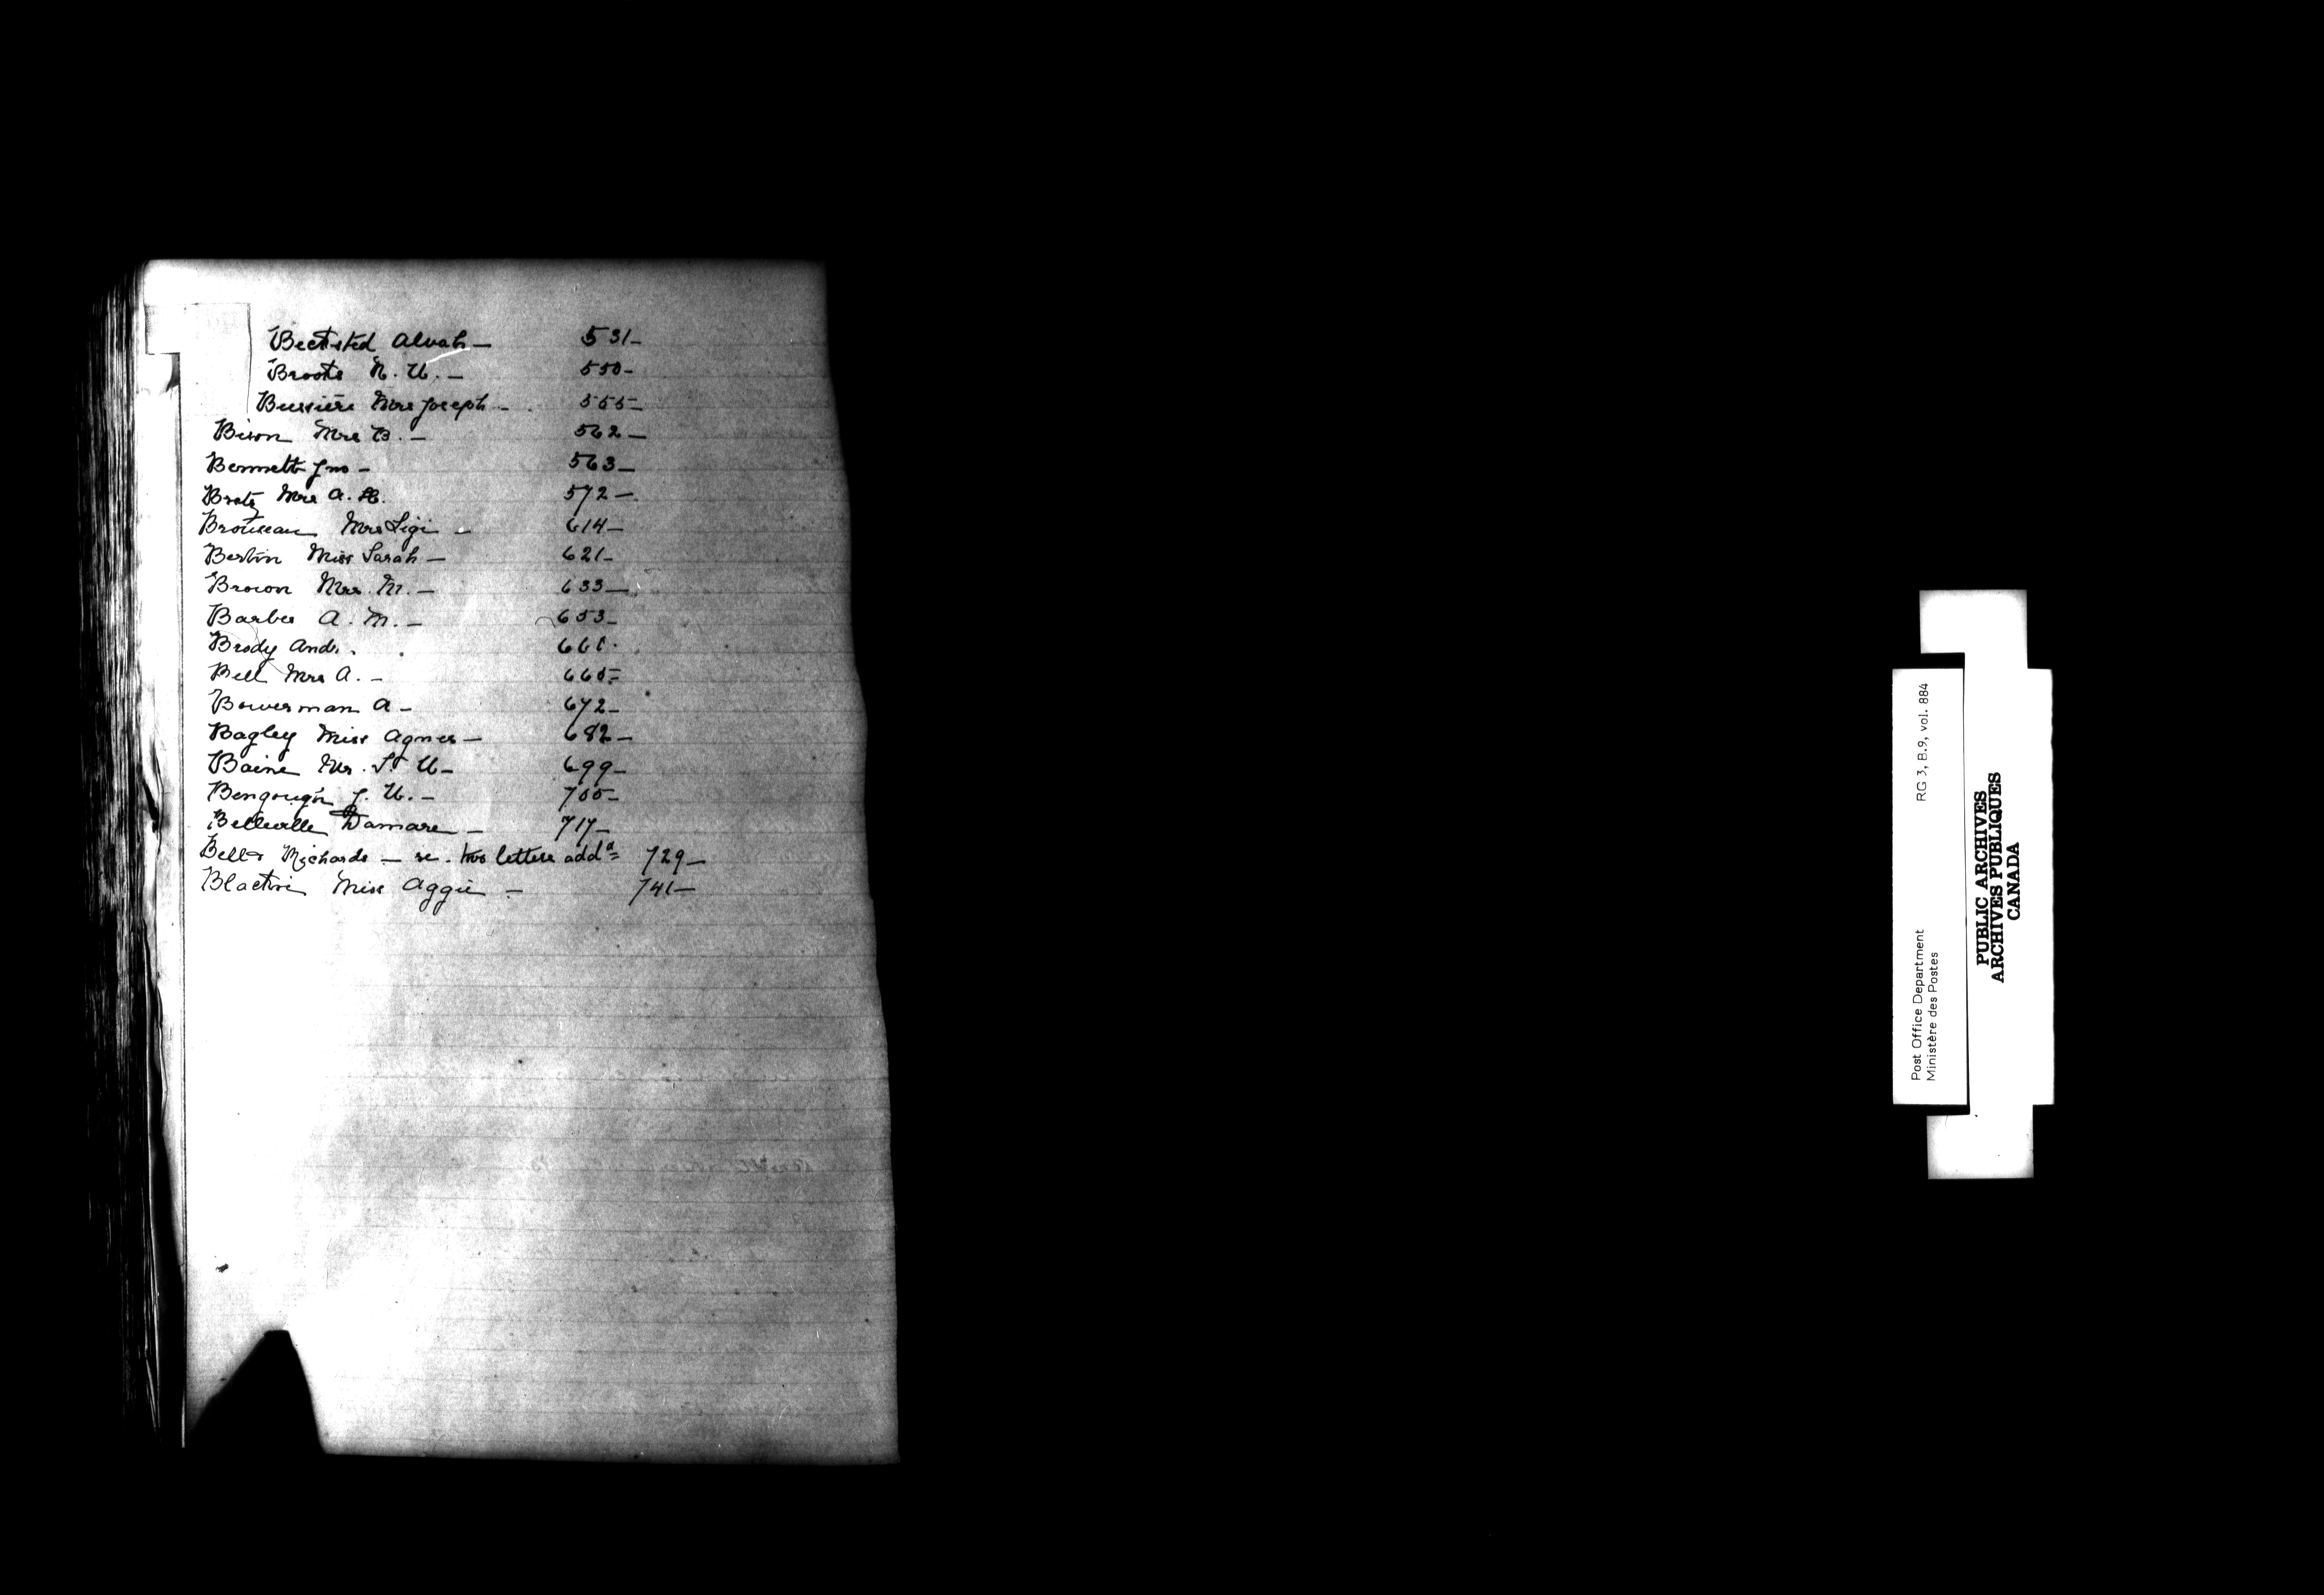 Becksted Alvah — 531 —
Brooks N. W. — 550 —
Bussière Mrs Joseph — 555 —
Bison Mrs B. — 562 —
Bennett Jno — 563 —
Bratz Mrs A. H. 572 —
Brouseau Mrs Ligi — 614 —
Berlin Miss Sarah — 621 —
Brown Mrs. M. — 633 —
Barber A. M. — 653 —
Brody And. 661
Bell Mrs A. — 665 —
Bowerman A — 672 —
Bagley Miss Agnes — 682 —
Baine Mr. S. W — 699 —
Bengough J. W. — 705 —
Belleville Damare — 717 —
Bell & Richards — re. two letters addd 729 —
Blackie Miss Aggie — 741 —
Post Office Department RG 3, B.9, vol. 884
Ministère des Postes
PUBLIC ARCHIVES
ARCHIVES PUBLIQUES
CANADA